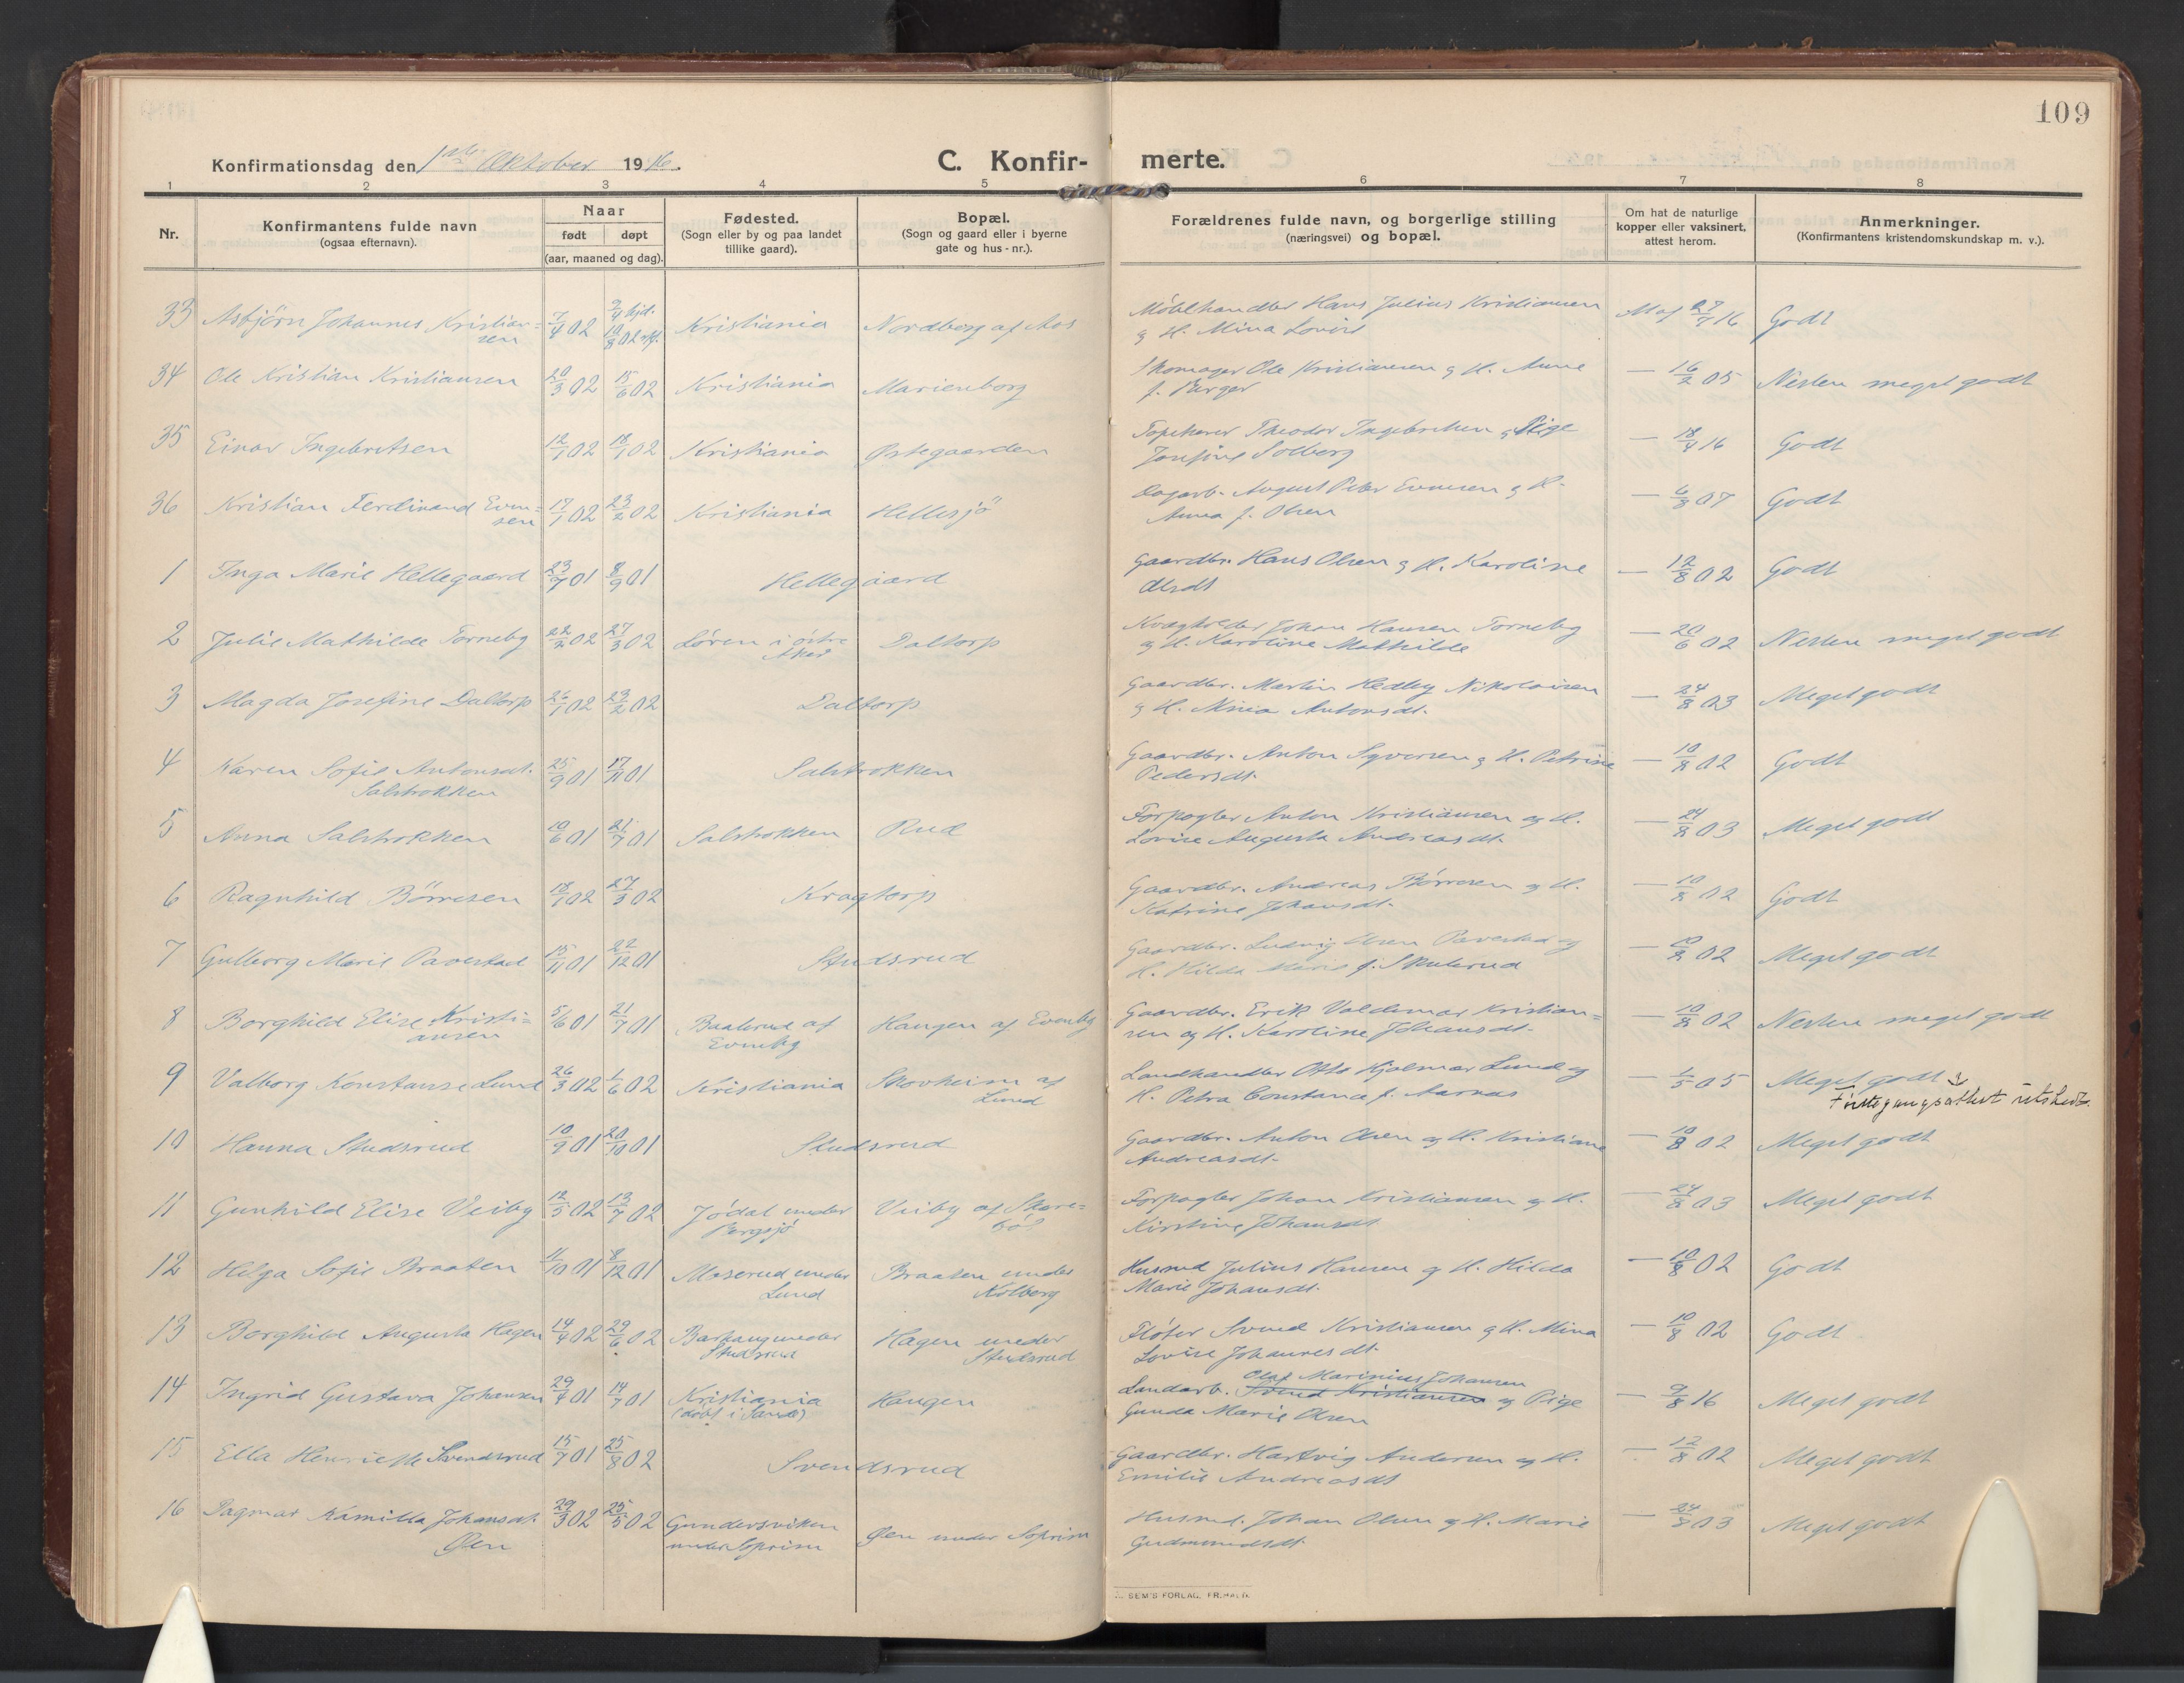 109
Konfirmationsdag den 1ste Oktober 1916.
C. Konfir- merte.
1 2 3 4 5 6 7 8
Nr.
Konfirmantens fulde navn
(ogsaa efternavn).
Naar
født døpt
(aar, maaned og dag).
Fødested.
(Sogn eller by og paa landet
tillike gaard).
Bopæl.
(Sogn og gaard eller i byerne
gate og hus-nr.).
Forældrenes fulde navn, og borgerlige stilling
(næringsvei) og bopæl.
Om hat de naturlige
kopper eller vaksinert,
attest herom.
Anmerkninger.
(Konfirmantens kristendomskundskap m. v.).
33 Asbjörn Johannes Kristian=
sen 7/4 02 9/4 hjd. 10/8 02 Kristiania Nordberg af Aas Møbelhandler Hans Julius Kristiansen
og H. Mina Lovise 27/7 16 Godt
34 Ole Kristian Kristiansen 20/3 02 15/6 02 Kristiania Marienborg Skomager Ole Kristiansen og H. Anne
f. Berger — 16/2 05 Nesten meget godt
35 Einar Ingebretsen 12/1 02 18/1 02 Kristiania Østegaarden Tapetserer Theodor Ingebretsen og Pige
Josefine Solberg — 18/4 16 Godt
36 Kristian Ferdinand Even=
sen 17/1 02 23/2 02 Kristiania Hellesjö Dagarb. August Peter Evensen og H.
Anna f. Olsen — 6/8 07 Godt
1 Inga Marie Hellegaard 23/7 01 8/9 01 Hellegaard Gaardbr. Hans Olsen og H. Karoline
Olsdt — 12/8 02 Godt
2 Julie Mathilde Torneby 22/2 02 27/3 02 Løren i østre
Aker Daltorp Kvægholder Johan Hansen Torneby
og H. Karoline Mathilde — 20/6 02 Nesten meget godt
3 Magda Josefine Daltorp 26/1 02 23/2 02 Daltorp Gaardbr. Martin Hedley Nikolaisen
og H. Mina Antonsdt. — 24/8 03 Meget godt
4 Karen Sofie Antonsdt.
Salstrokken 25/9 01 17/11 01 Salstrokken Gaardbr. Anton Syversen og H. Petrine
Pedersdt. — 10/8 02 Godt
5 Anna Salstrokken 10/6 01 21/7 01 Salstrokken Rud Forpagter Anton Kristiansen og H.
Lovise Augusta Andreasdt. — 24/8 03 Meget godt
6 Ragnhild Börresen 18/1 02 27/3 02 Kragtorp Gaardbr. Andreas Børresen og H.
Katrine Johansdt. — 10/8 02 Godt
7 Gulborg Marie Paverstad 15/11 01 22/12 01 Studsrud Gaardbr. Ludvig Olsen Paverstad og
H. Hilda Marie f. Skulerud — 10/8 02 Meget godt
8 Borghild Elise Kristi=
ansen 5/6 01 21/7 01 Baalerud af
Evenby Haugen af Evenby Gaardbr. Erik Valdemar Kristian=
sen og H. Karoline Johansdt. — 10/8 02 Nesten meget godt
9 Valborg Konstanse Lund 26/3 02 1/6 02 Kristiania Skovheim af
Lund Landhandler Otto Hjalmar Lund og
H. Petra Constance f. Aarnæs — 1/5 05 Meget godt
Førstegangsattest utstedt.
10 Hanna Studsrud 10/9 01 20/10 01 Studsrud Gaardbr. Anton Olsen og H. Kristiane
Andreasdt. — 10/8 02 Meget godt
11 Gunhild Elise Veiby 12/5 02 13/7 02 Jødal under
Bergsjø Veiby af Skare=
böl Forpagter Johan Kristiansen og H.
Kirstine Johansdt — 24/8 03 Meget godt
12 Helga Sofie Braaten 11/10 01 8/12 01 Moserud under
Lund Braaten under
Kolberg Husmd Julius Hansen og H. Hilda
Marie Johansdt. — 10/8 02 Godt
13 Borghild Augusta Hagen 14/4 02 29/6 02 Barhaug under
Studsrud Hagen under
Studsrud Fløter Svend Kristiansen og H. Mina
Lovise Johannesdt. — 10/8 02 Godt
14 Ingrid Gustava Johansen 29/4 01 14/7 01 Kristiania
(døbt i Sande) Haugen Olaf Marinius Johansen
Landarb. Svend Kristiansen og Pige
Gunda Marie Olsen — 9/8 16 Meget godt
15 Ella Henriette Svendsrud 15/7 01 25/8 02 Svendsrud Gaardbr. Hartvig Andersen og H.
Emilie Andreasdt — 12/8 02 Meget godt
16 Dagmar Kamilla Johansdt.
Øen 29/3 02 25/5 02 Gundersviken
under Soprim Øen under Soprim Husmd. Johan Olsen og H. Marie
Gudmundsdt. — 24/8 03 Meget godt
SEM'S FORLAG, FR.HALD.